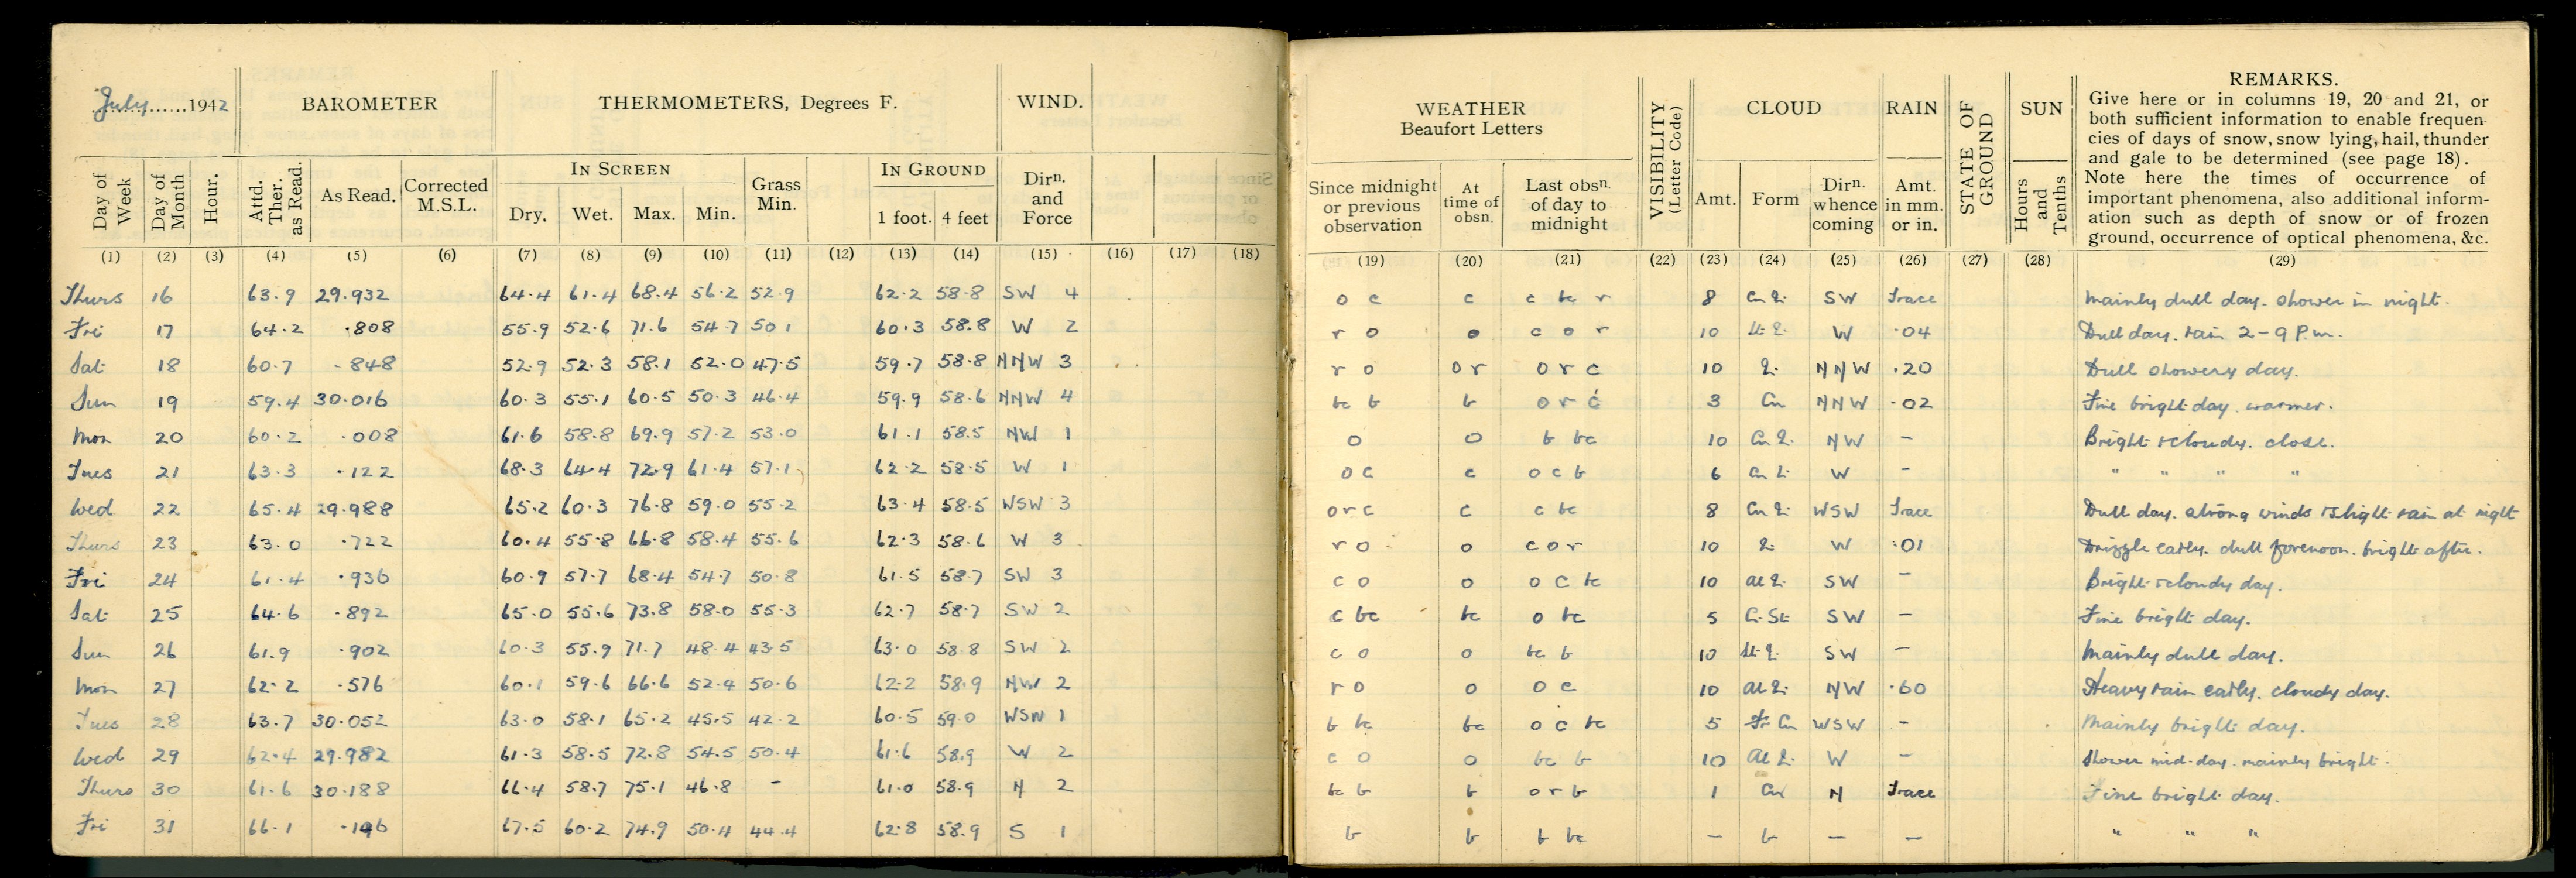 July 1942 BAROMETER THERMOMETERS, Degrees F. WIND.
Day of Week Day of Month Hour. Attd. Ther. as Read. As Read. Corrected M.S.L. IN SCREEN Dry. Wet. Max. Min. Grass Min. IN GROUND 1 foot. 4 feet Dirn. and Force
(1) (2) (3) (4) (5) (6) (7) (8) (9) (10) (11) (12) (13) (14) (15) (16) (17) (18)
Thurs 16 63.9 29.932 64.4 61.4 68.4 56.2 52.9 62.2 58.8 SW 4
Fri 17 64.2 .808 55.9 52.6 71.6 54.7 50.1 60.3 58.8 W 2
Sat 18 60.7 .848 52.9 52.3 58.1 52.0 47.5 59.7 58.8 NNW 3
Sun 19 59.4 30.016 60.3 55.1 60.5 50.3 46.4 59.9 58.6 NNW 4
Mon 20 60.2 .008 61.6 58.8 69.9 57.2 53.0 61.1 58.5 NW 1
Tues 21 63.3 .122 68.3 64.4 72.9 61.4 57.1 62.2 58.5 W 1
Wed 22 65.4 29.988 65.2 60.3 76.8 59.0 55.2 63.4 58.5 WSW 3
Thurs 23 63.0 .722 60.4 55.8 66.8 58.4 55.6 62.3 58.6 W 3
Fri 24 61.4 .936 60.9 57.7 68.4 54.7 50.8 61.5 58.7 SW 3
Sat 25 64.6 .892 65.0 55.6 73.8 58.0 55.3 62.7 58.7 SW 2
Sun 26 61.9 .902 60.3 55.9 71.7 48.4 43.5 63.0 58.8 SW 2
Mon 27 62.2 .576 60.1 59.6 66.6 52.4 50.6 62.2 58.9 NW 2
Tues 28 63.7 30.052 63.0 58.1 65.2 45.5 42.2 60.5 59.0 WSW 1
Wed 29 62.4 29.982 61.3 58.5 72.8 54.5 50.4 61.6 58.9 W 2
Thurs 30 61.6 30.188 66.4 58.7 75.1 46.8 - 61.0 58.9 N 2
Fri 31 66.1 67.5 60.2 74.9 50.4 44.4 62.8 58.9 S 1
WEATHER Beaufort Letters VISIBILITY (Letter Code) CLOUD RAIN STATE OF GROUND SUN
Since midnight or previous observation At time of obsn. Last obsn. of day to midnight Amt. Form Dirn. whence coming Amt. in mm. or in. Hours and Tenths
REMARKS.
Give here or in columns 19, 20 and 21, or
both sufficient information to enable frequen-
cies of days of snow, snow lying, hail, thunder
and gale to be determined (see page 18).
Note here the times of occurrence of
important phenomena, also additional inform-
ation such as depth of snow or of frozen
ground, occurrence of optical phenomena, &c.
(19) (20) (21) (22) (23) (24) (25) (26) (27) (28) (29)
o c c c bc r 8 SW Trace Mainly dull day. Shower in night.
r o o c o r 10 W .04 Dull day. rain 2-9 P.m.
r o o r o r c 10 NNW .20 Dull showery day.
bc b b o r c 3 Cu NNW .02 Fine bright day. warmer.
o o b bc 10 NW - Bright & cloudy. close.
o c c o c b 6 W - " " " "
o r c c c bc 8 WSW Trace Dull day. strong winds & slight rain at night
r o o c o r 10 W .01 Drizzle early. dull forenoon. bright after.
c o o o c bc 10 SW - Bright & cloudy day.
c bc bc o bc 5 SW - Fine bright day.
c o o bc b 10 SW - Mainly dull day.
r o o o c 10 NW .60 Heavy rain early. cloudy day.
b bc bc o c bc 5 Fr Cu WSW - Mainly bright day.
c o o bc b 10 W - Shower mid-day. mainly bright.
bc b b o r b 1 Cu N Trace Fine bright day.
b b b bc - b - - " " "